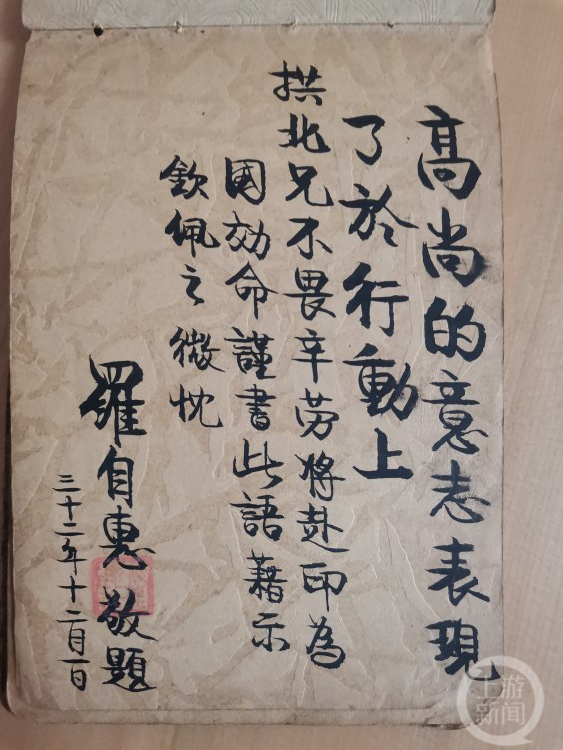 高尚的意志表現
了於行動上
拱北兄不畏辛劳將赴印為
國効命謹書此語藉示
欽佩之微忱
羅自惠敬題
三十二年十二月一日
上游新闻